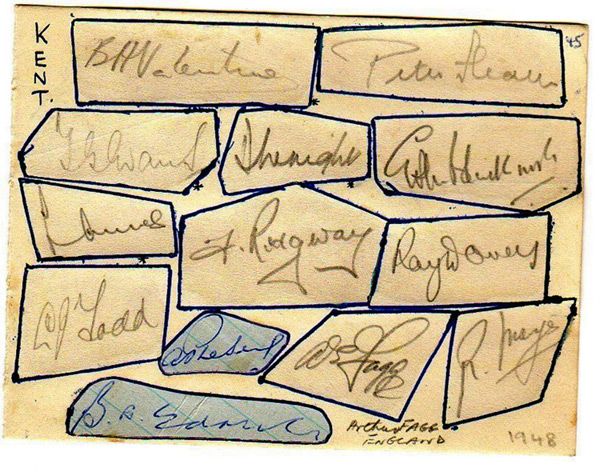 KENT.
45
BHValentine
Peter Hearn
TGEvans
LAmes
F. Ridgway
Ray Dovey
LJ Todd
AE Fagg
R. Mayes
B.R. Edrich
Arthur FAGG
ENGLAND
1948